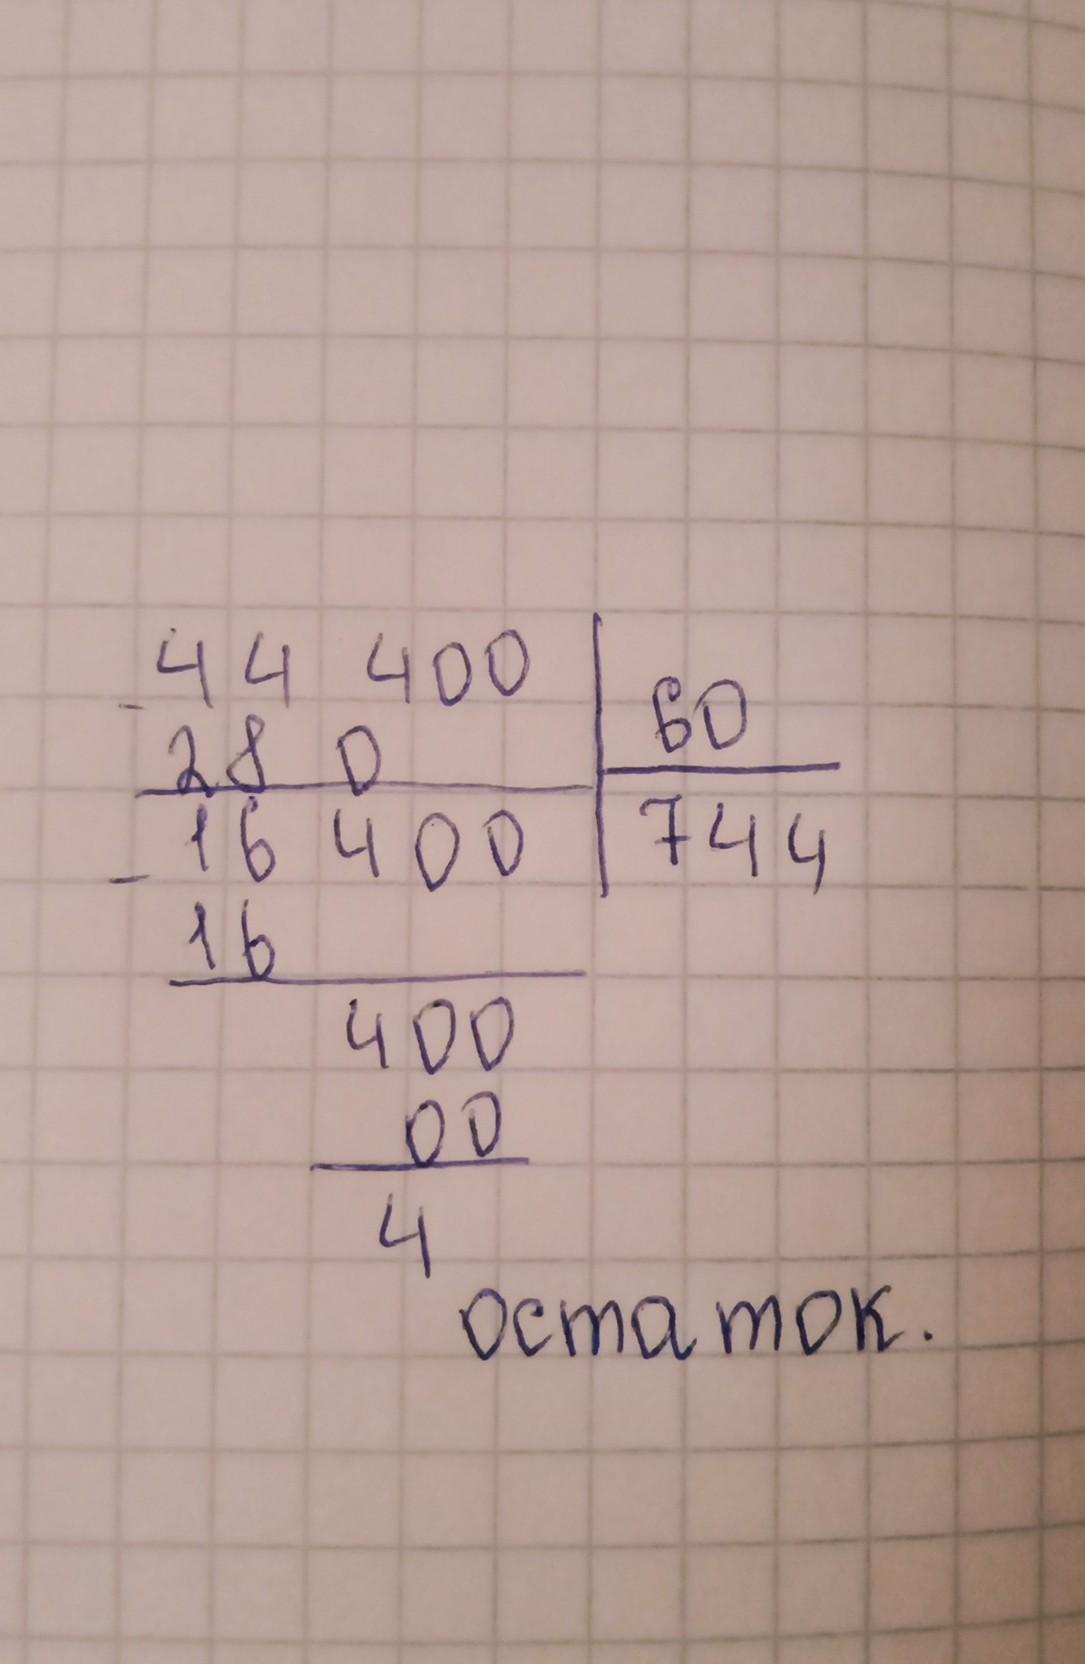 44 400
60
- 28 0
744
16 400
- 16
400
00
4
остаток.